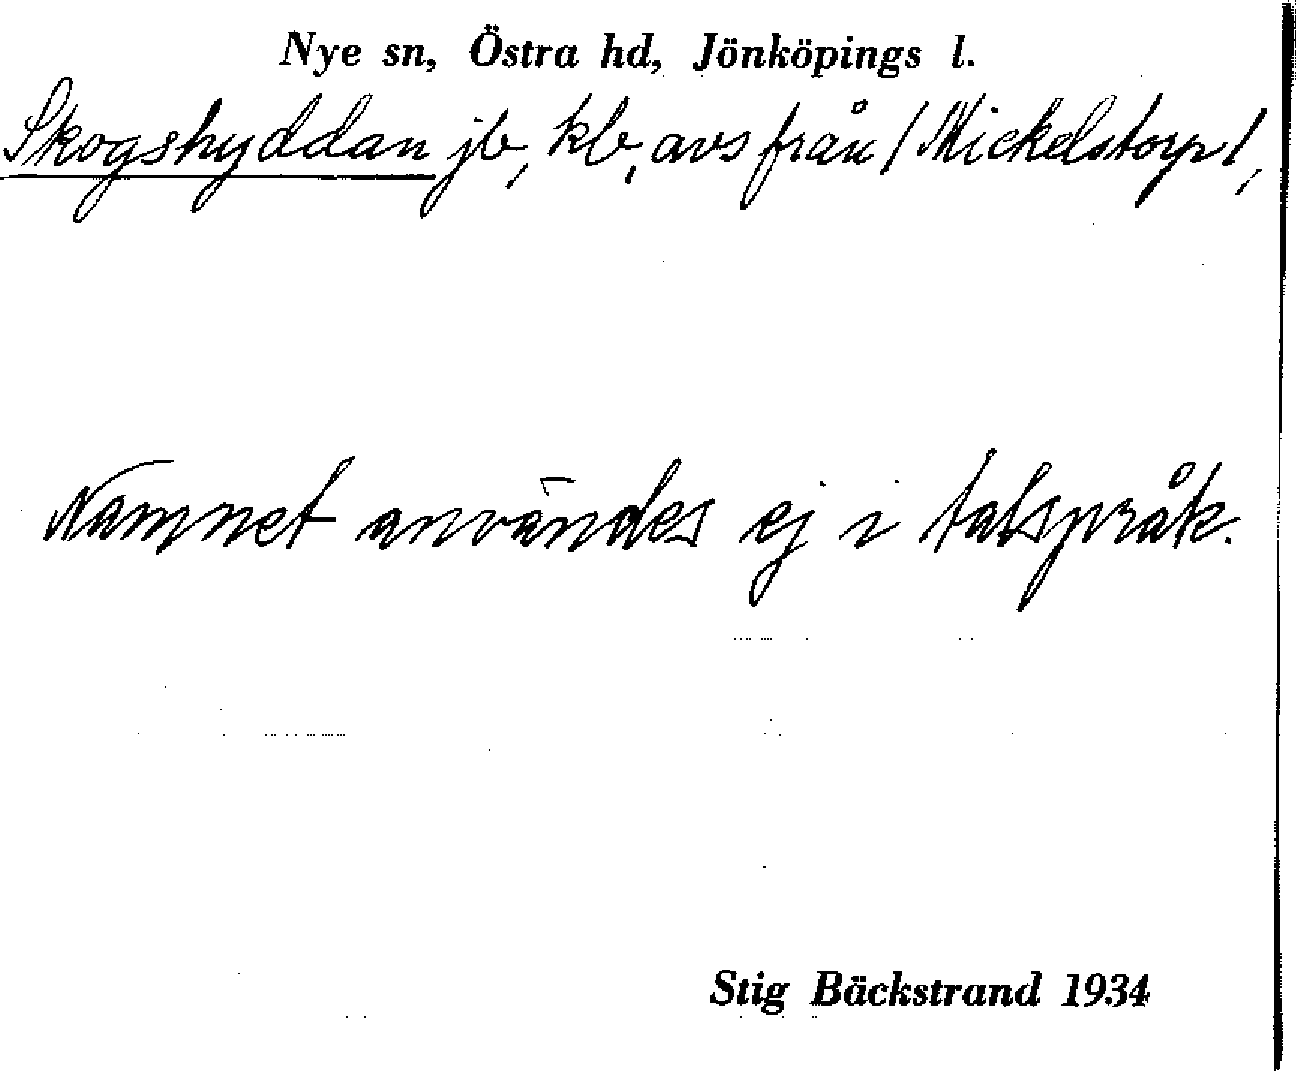 Nye sn, Östra hd, Jönköpings l.
Skogshyddan jb, kb, avs från / Mickelstorp /,
Namnet användes ej i talspråk.
Stig Bäckstrand 1934